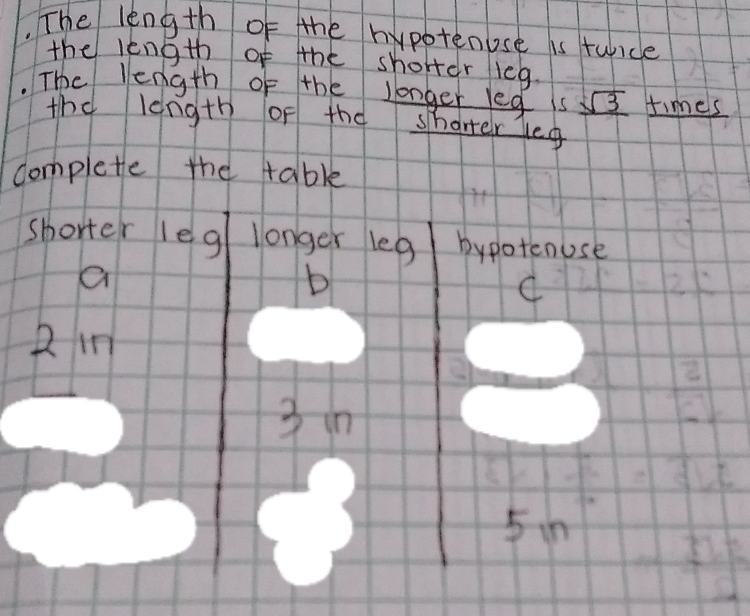 . The length of the hypotenuse is twice
the length of the shorter leg.
. The length of the longer leg is √3 times
the length of the shorter leg
complete the table
shorter leg longer leg hypotenuse
a b c
2 in
3 in
5 in